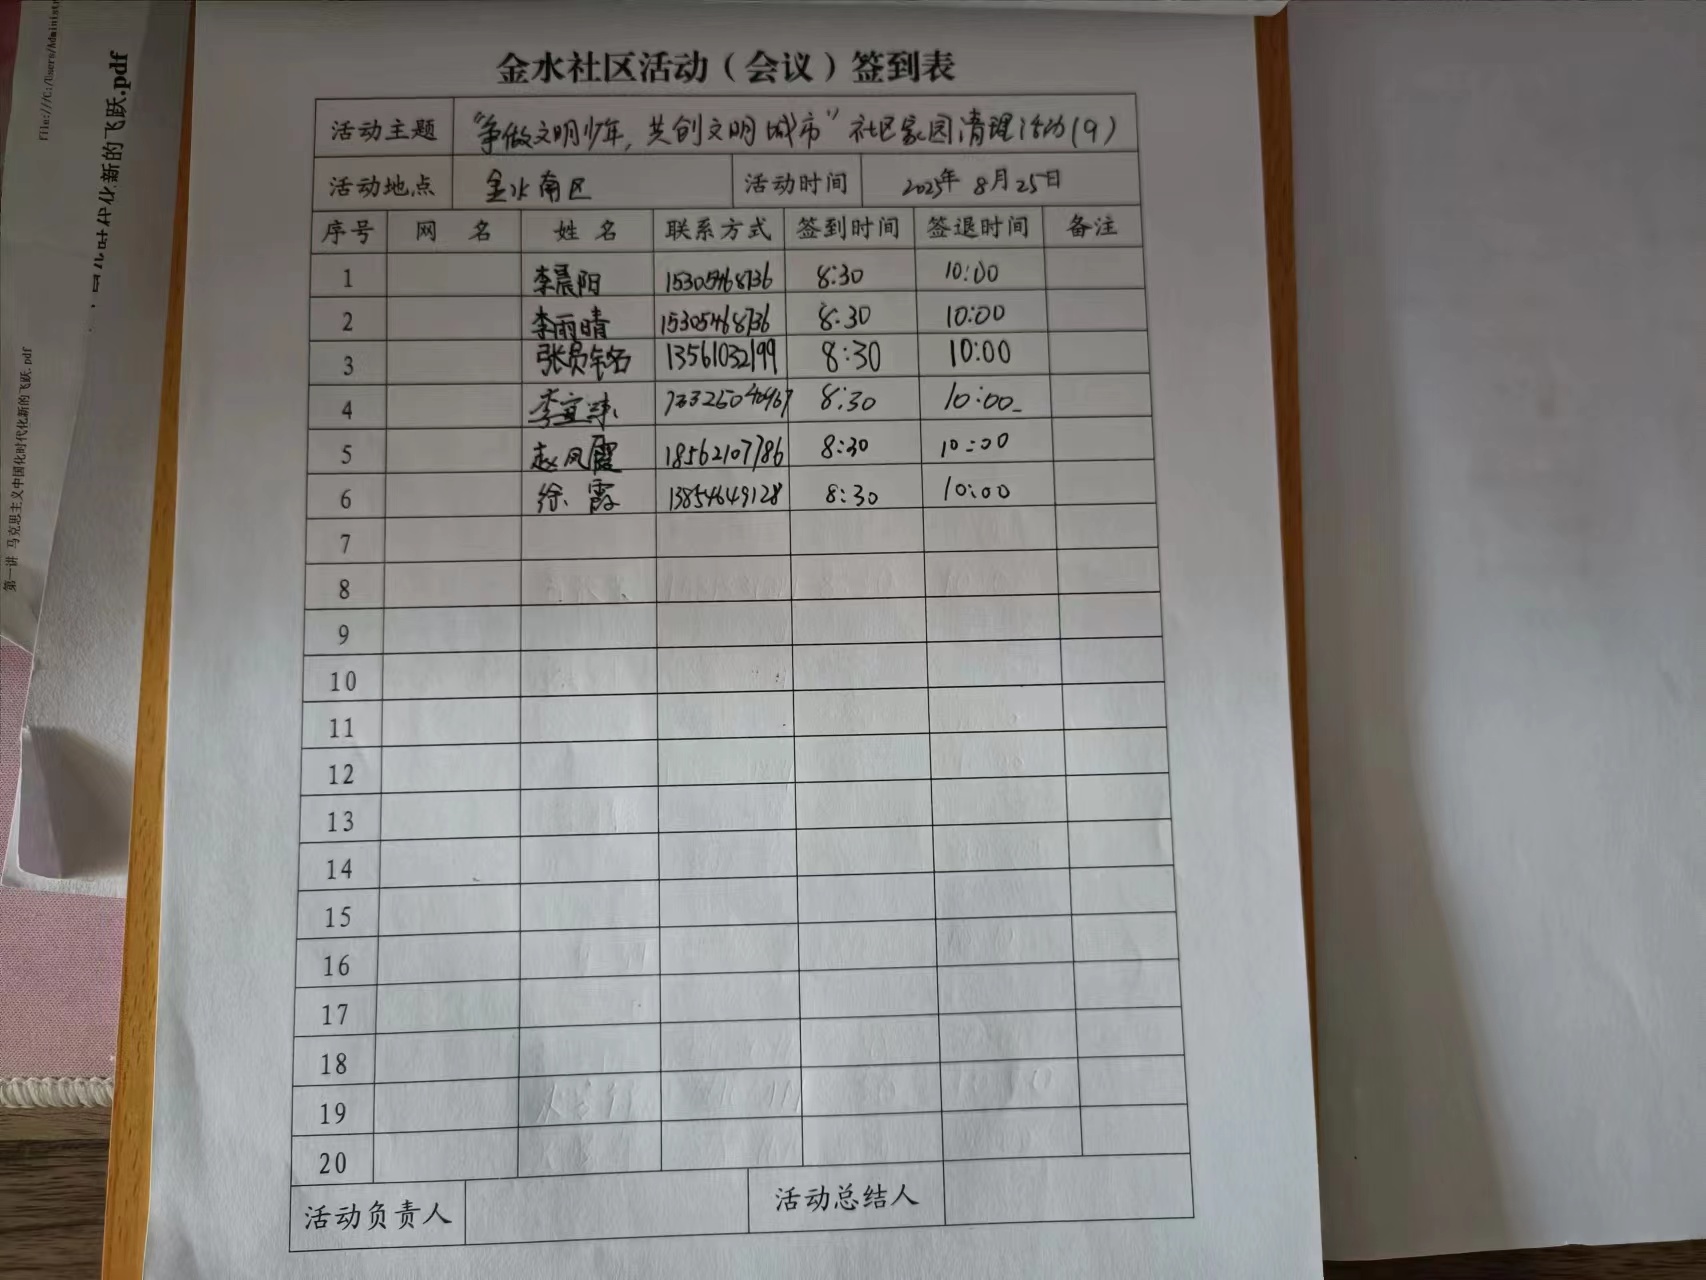 File:///C:/Users/Administ
的飞跃.pdf
第一讲 马克思主义中国化时代化新的飞跃.pdf
金水社区活动（会议）签到表
活动主题 “争做文明少年，共创文明城市”社区家园清理活动(9)
活动地点 金水南区 活动时间 2025年8月25日
序号 网 名 姓 名 联系方式 签到时间 签退时间 备注
1 李晨阳 15305468736 8:30 10:00
2 李雨晴 15305468736 8:30 10:00
3 13561032199 8:30 10:00
4 8:30 10:00
5 赵凤霞 18562107786 8:30 10:00
6 徐霞 13854649128 8:30 10:00
7
8
9
10
11
12
13
14
15
16
17
18
19
20
活动负责人 活动总结人